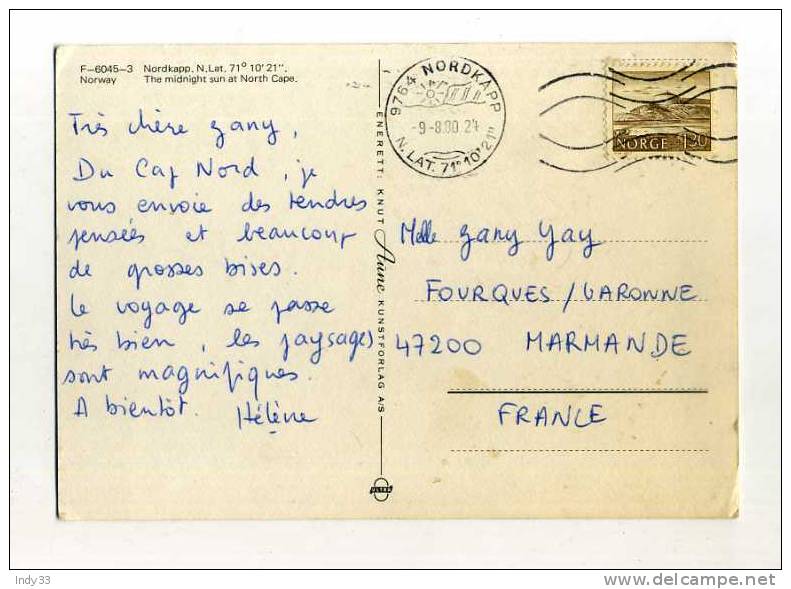 F-6045-3 Nordkapp. N.Lat. 71° 10' 21".
Norway The midnight sun at North Cape.
Très chère Zany,
Du Cap Nord, je
vous envoie des tendres
pensées et beaucoup
de grosses bises.
Le voyage se passe
très bien, les paysages
sont magnifiques.
A bientôt. Hélène
ENERETT: KNUT Aune KUNSTFORLAG A/S
ULTRA
9764 NORDKAPP
-9-8.80.24
N.LAT. 71°10'21"
NORGE 1,30
Melle Zany Yay
FOURQUES/GARONNE
47200 MARMANDE
FRANCE
Indy33
delcampe.net